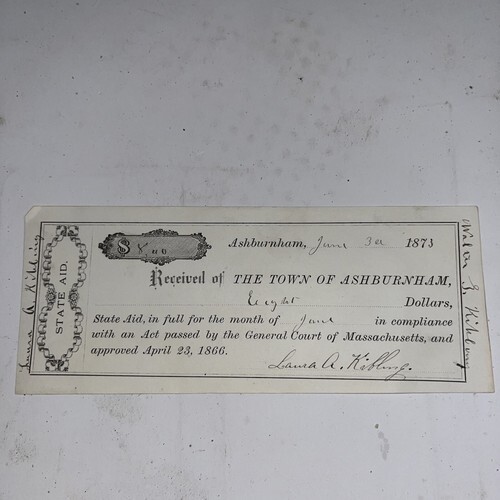 $ 8.00 Ashburnham, June 3d 1873
Received of THE TOWN OF ASHBURNHAM,
Eight Dollars,
State Aid, in full for the month of June in compliance
with an Act passed by the General Court of Massachusetts, and
approved April 23, 1866.
Laura A. Kibling.
STATE AID.
Laura A. Kibling
Kibling